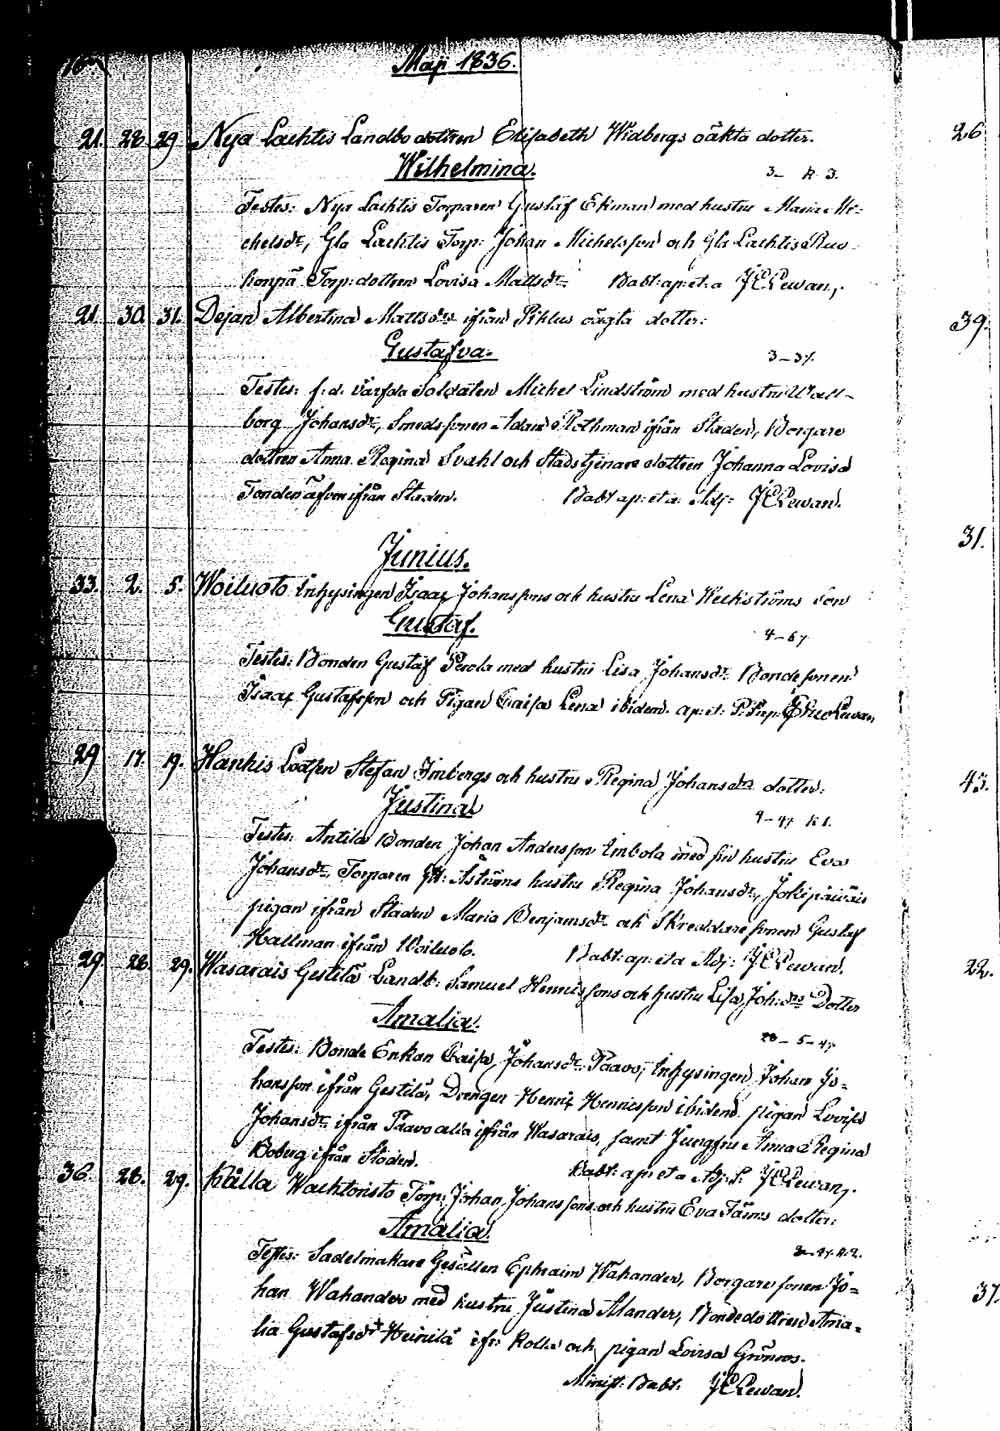 Maji 1836.
21. 28. 29. Nya Lachtis Landbo dottren Elisabeth Widbergs oäkta dotter.
26
Wilhelmina.
3 - k. 3.
Testes: Nya Lachtis Torparen Gustaf Ekman med hustru Maria Mi-
chelsdr, Gla Lachtis Torp: Johan Michelsson och Gla Lachtis Ruo-
horpä Torp: dottren Lovisa Mattsdr. Babt: ap: et a J E Lewan,
21. 30. 31. Dejan Albertina Mattsdrs ifrån Piklus oägta dotter:
39.
Gustafva.
3 - 37.
Testes: f: d. värfda Soldaten Michel Lindström med hustru Wall-
borg Johansdr, Smedssonen Adam Rothman ifrån Staden, Borgare
dottren Anna Regina Svahl och Stadstjenare dottren Johanna Lovisa
Tonden äfven ifrån Staden. Babt ap: et a Adj: J E Lewan.
31.
Junius.
33. 2. 5. Woiluoto Inhysingen Isaac Johanssons och hustru Lena Weckströms Son
Gustaf.
4 - 67
Testes: Bonden Gustaf Perola med hustru Lisa Johansdr. Bondesonen
Isaac Gustafsson och Pigan Caisa Lena ibidem. ap: et: Lewan
29 17. 19. Hankis Lodsen Stefan Imbergs och hustru Regina Johansdrs dotter:
43.
Justina
9 - 47 k 1.
Testes: Antila Bonden Johan Andersson Imbola med sin hustru Eva
Johansdr, Torparen Åströms hustru Regina Johansdr, Jokipäiväis
pigan ifrån Staden Maria Benjamsdr och Skreddare sonen Gustaf
Hallman ifrån Woiluoto. Babt: ap: et a Adj: J E Lewan.
29. 28. 29. Wasarais Gestilä Landb: Samuel Henrissons och hustru Lisa Joh:drs Dotter
22.
Amalia.
20 - 5 - 47
Testes: Bonde Enkan Caisa Johansdr Paavo, Inhysingen Johan Jo-
hansson ifrån Gestilä, Drengen Henric Henricsson ibidem. pigan Lovisa
Johansdr ifrån Paavo alla ifrån Wasarais, samt Jungfru Anna Regina
Boberg ifrån Staden. Babt: ap: et a Adj: J E Lewan,
36. 28. 29. Kålla Wachtoristo Torp: Johan Johanssons och hustru Eva Färms dotter:
Amalia.
3 - 47. k. 2.
Testes: Sadelmakare Gesällen Ephraim Wahander, Borgare sonen Jo-
37.
han Wahander med hustru Justina Alander, Bondedottren Ama-
lia Gustafsdr Heinilä ifr: Kolla och pigan Lovisa Grönroos.
Minist: Babt. J E Lewan.